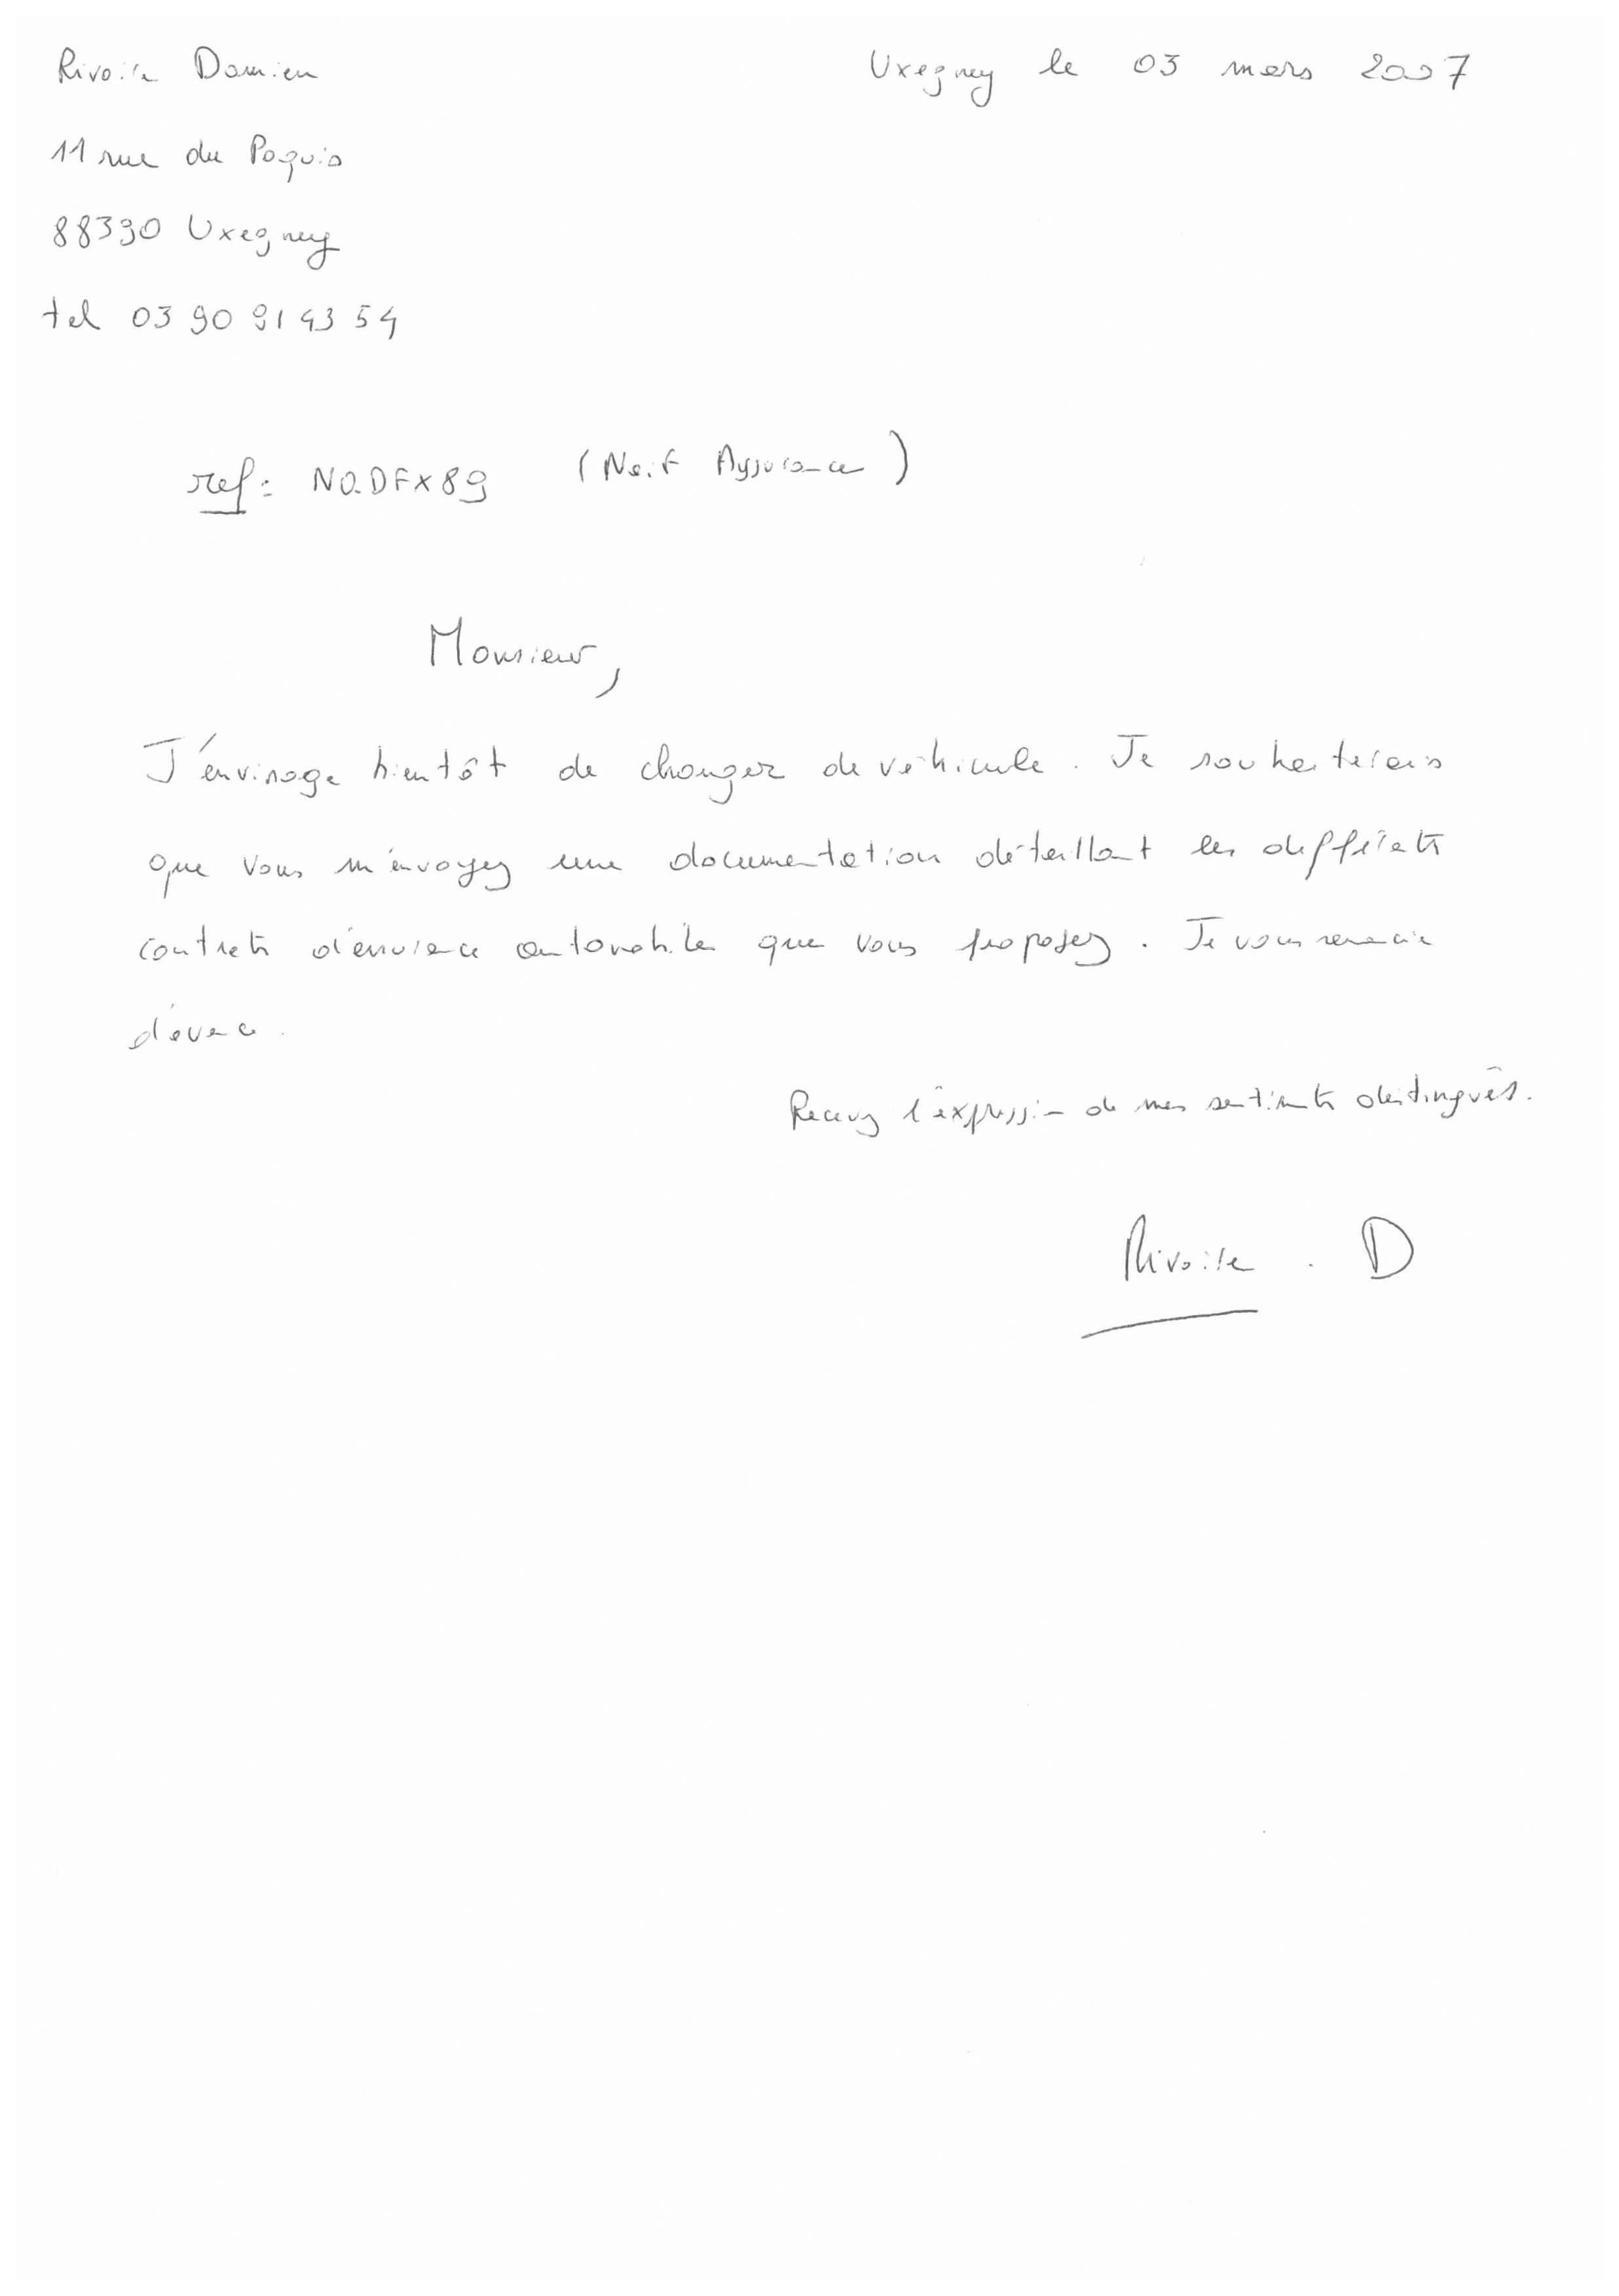 Rivoire Damien
Uxegney le 03 mars 2007
11 rue du Poquis
88390 Uxegney
tel 03 90 91 43 54
ref: NQDFX89 (Neif Assurance)
Monsieur,
J'envisage bientôt de changer de véhicule. Je souhaiterais
que vous m'envoyez une documentation détaillant les différents
contrats d'assurance automobiles que vous proposez. Je vous remercie
d'avance.
Recevez l'expression de mes sentiments distingués.
Rivoire . D